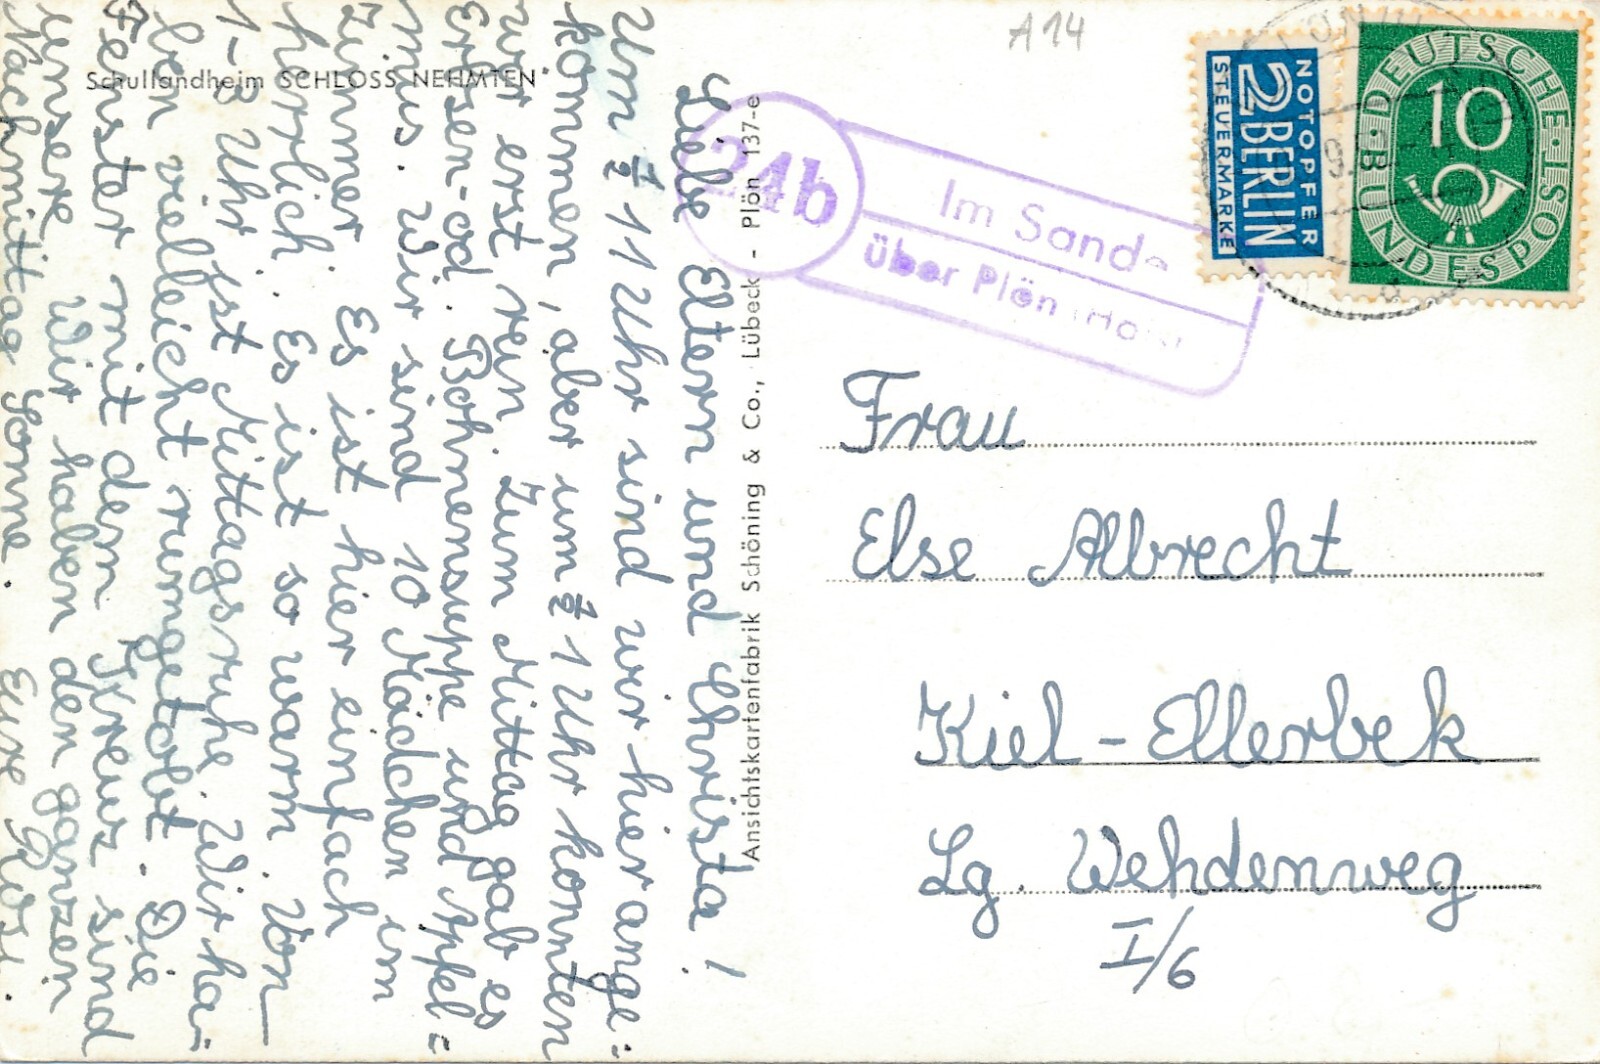 Schullandheim SCHLOSS NEHMTEN
Liebe Eltern und Christa!
Um ½ 11 Uhr sind wir hier ange=
kommen, aber um ½ 1 Uhr konnten
wir erst rein. Zum Mittag gab es
Erbsen-od. Bohnensuppe und Apfel=
mus. Wir sind 10 Mädchen im
Zimmer. Es ist hier einfach
herrlich. Es ist so warm. Von
1-3 Uhr ist Mittagsruhe. Wir ha-
ben vielleicht rumgetobt. Die
Fenster mit dem Kreuz sind
unsere. Wir haben den ganzen
Nachmittag Sonne. Eure Rosi.
Ansichtskartenfabrik Schöning & Co., Lübeck - Plön 137-e
A14
24b
Im Sande
über Plön (Holst
NOTOPFER
2 BERLIN
STEUERMARKE
DEUTSCHE BUNDESPOST
10
Frau
Else Albrecht
Kiel-Ellerbek
Lg. Wehdenweg
I/6